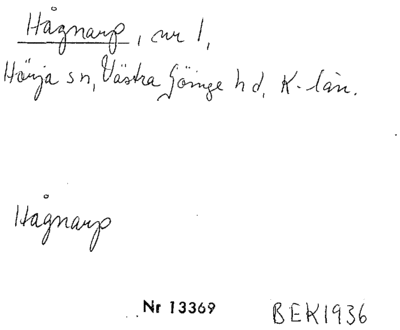 Hågnarp, nr 1,
Hörja sn, Västra Göinge hd, K-län.
Hågnarp
Nr 13369 BEK1936